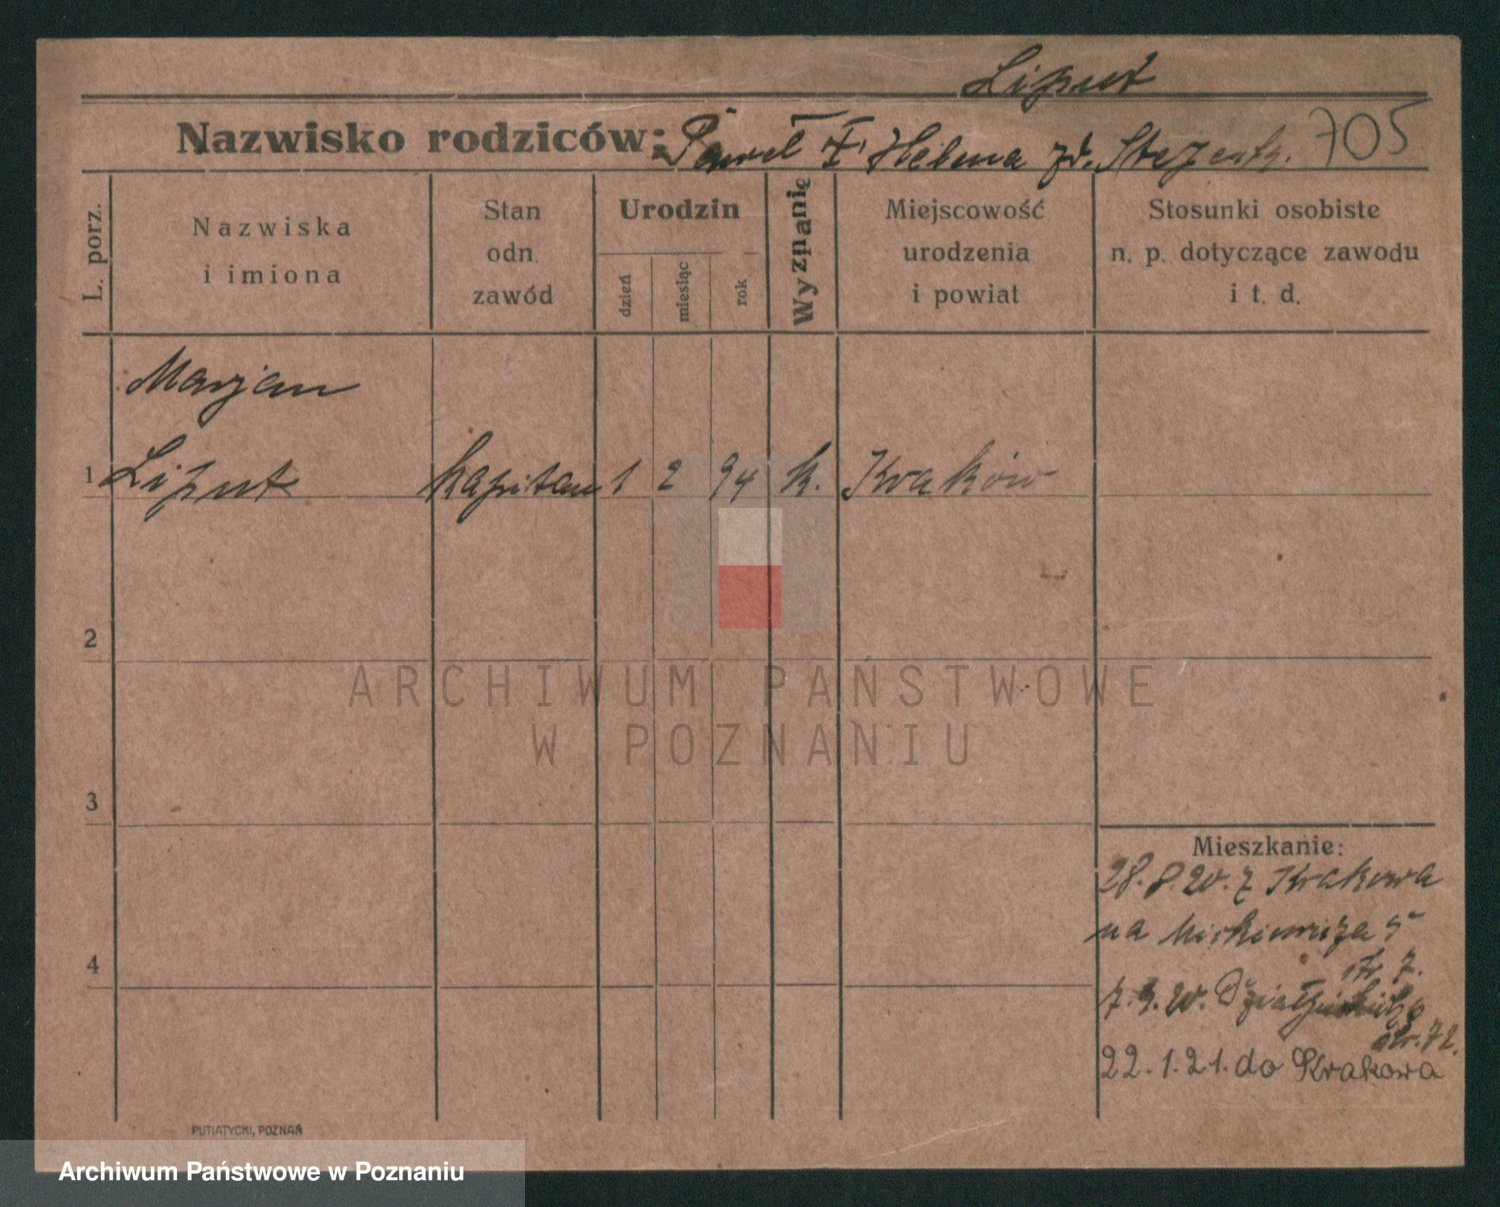 Liput
Nazwisko rodziców: Paweł i Helena zd. 705
L. porz.
Nazwiska
i imiona
Stan
odn.
zawód
Urodzin
dzień
miesiąc
rok
Wyznanie
Miejscowość
urodzenia
i powiat
Stosunki osobiste
n. p. dotyczące zawodu
i t. d.
Marjan
1 Liput kapitan 1 2 94 k. Kraków
2
3
4
Mieszkanie:
28.8.20. z Krakowa
na Mickiewicza 5
7.9.20. Działyńskich
22.1.21. do Krakowa
PUTIATYCKI, POZNAŃ
ARCHIWUM PAŃSTWOWE
W POZNANIU
Archiwum Państwowe w Poznaniu